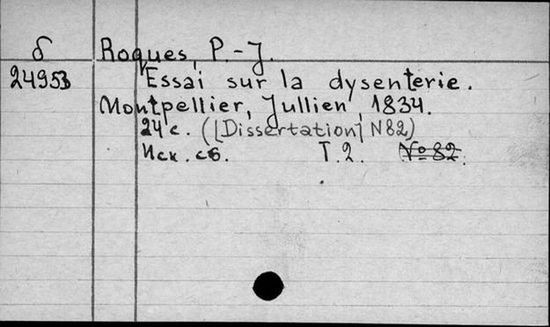 δ Roques, P.-J.
24953 Essai sur la dysenterie.
Montpellier, Jullien, 1834.
24 с. ([Dissertation] N82)
Иск. сб. T.2. №82.